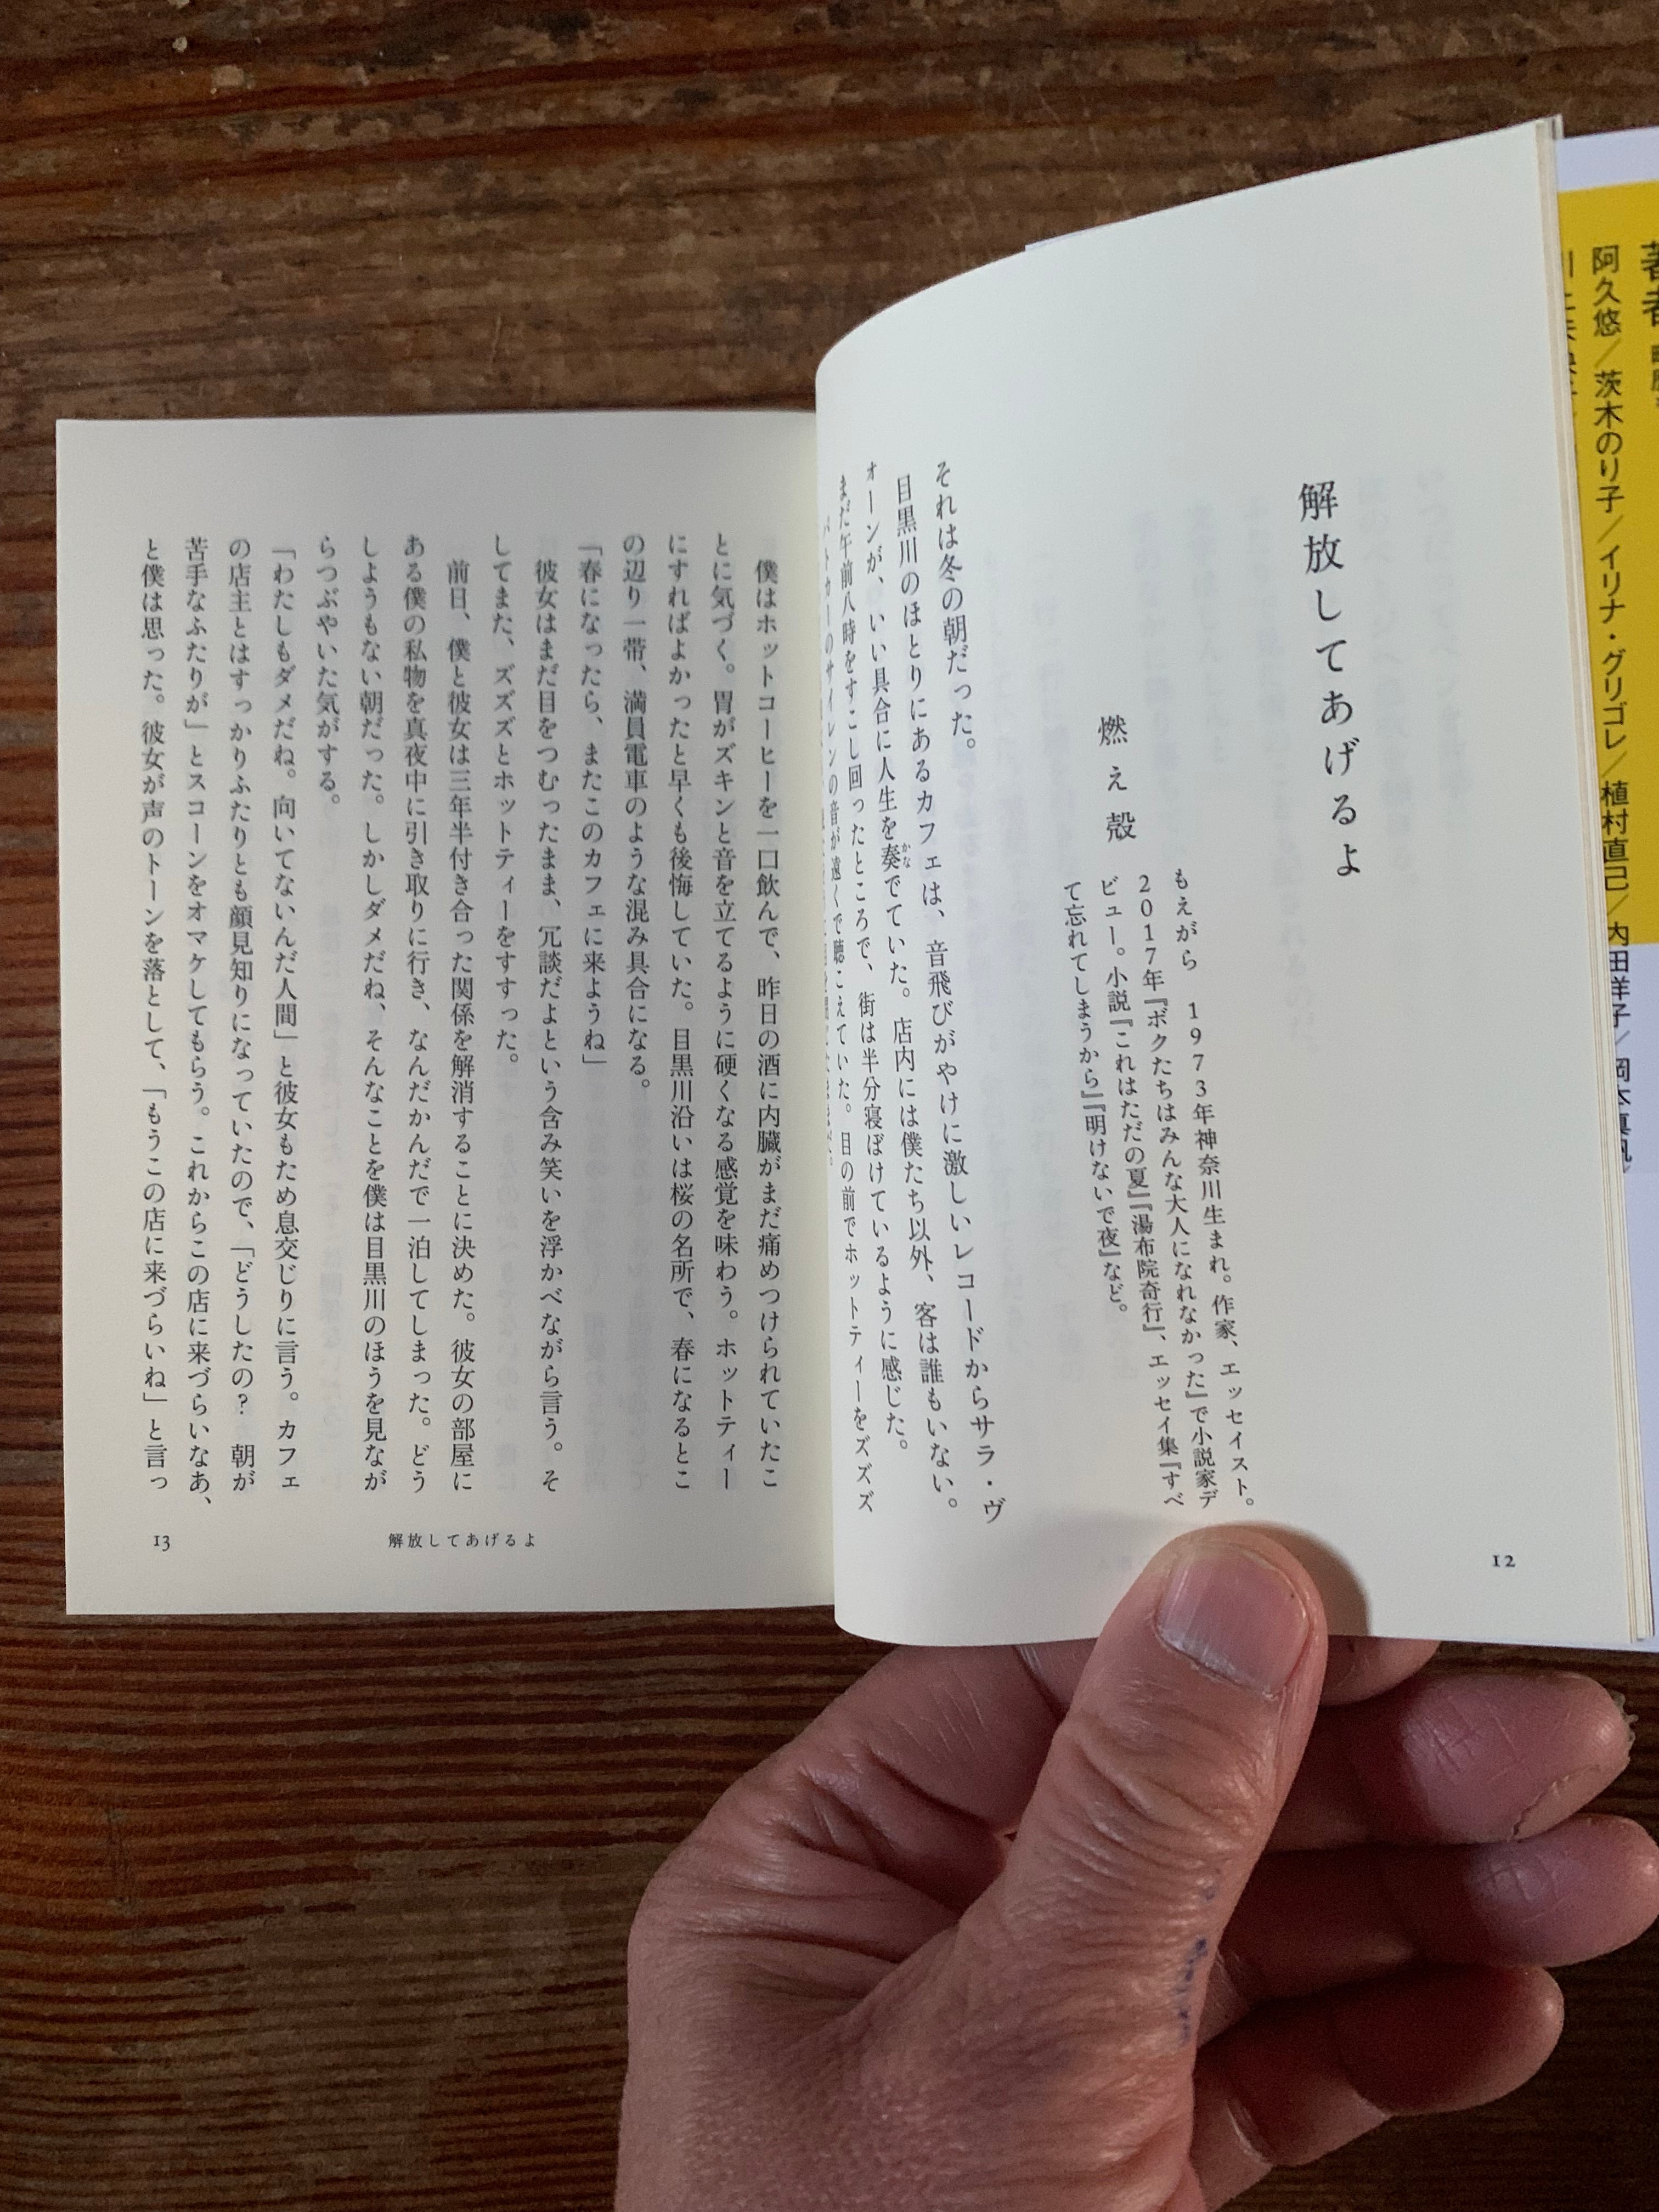 著者
阿久悠／茨木のり子／イリナ・グリゴレ／植村直己／内田洋子／岡本真帆
解放してあげるよ
燃え殻
もえがら　1973年神奈川生まれ。作家、エッセイスト。
2017年『ボクたちはみんな大人になれなかった』で小説家デ
ビュー。小説『これはただの夏』『湯布院奇行』、エッセイ集『すべ
て忘れてしまうから』『明けないで夜』など。
それは冬の朝だった。
目黒川のほとりにあるカフェは、音飛びがやけに激しいレコードからサラ・ヴ
ォーンが、いい具合に人生を奏かなでていた。店内には僕たち以外、客は誰もいない。
まだ午前八時をすこし回ったところで、街は半分寝ぼけているように感じた。
パトカーのサイレンの音が遠くで聴こえていた。目の前でホットティーをズズズ
12
僕はホットコーヒーを一口飲んで、昨日の酒に内臓がまだ痛めつけられていたこ
とに気づく。胃がズキンと音を立てるように硬くなる感覚を味わう。ホットティー
にすればよかったと早くも後悔していた。目黒川沿いは桜の名所で、春になるとこ
の辺り一帯、満員電車のような混み具合になる。
「春になったら、またこのカフェに来ようね」
彼女はまだ目をつむったまま、冗談だよという含み笑いを浮かべながら言う。そ
してまた、ズズズとホットティーをすすった。
前日、僕と彼女は三年半付き合った関係を解消することに決めた。彼女の部屋に
ある僕の私物を真夜中に引き取りに行き、なんだかんだで一泊してしまった。どう
しようもない朝だった。しかしダメだね、そんなことを僕は目黒川のほうを見なが
らつぶやいた気がする。
「わたしもダメだね。向いてないんだ人間」と彼女もため息交じりに言う。カフェ
の店主とはすっかりふたりとも顔見知りになっていたので、「どうしたの？　朝が
苦手なふたりが」とスコーンをオマケしてもらう。これからこの店に来づらいなあ、
と僕は思った。彼女が声のトーンを落として、「もうこの店に来づらいね」と言っ
解放してあげるよ
13